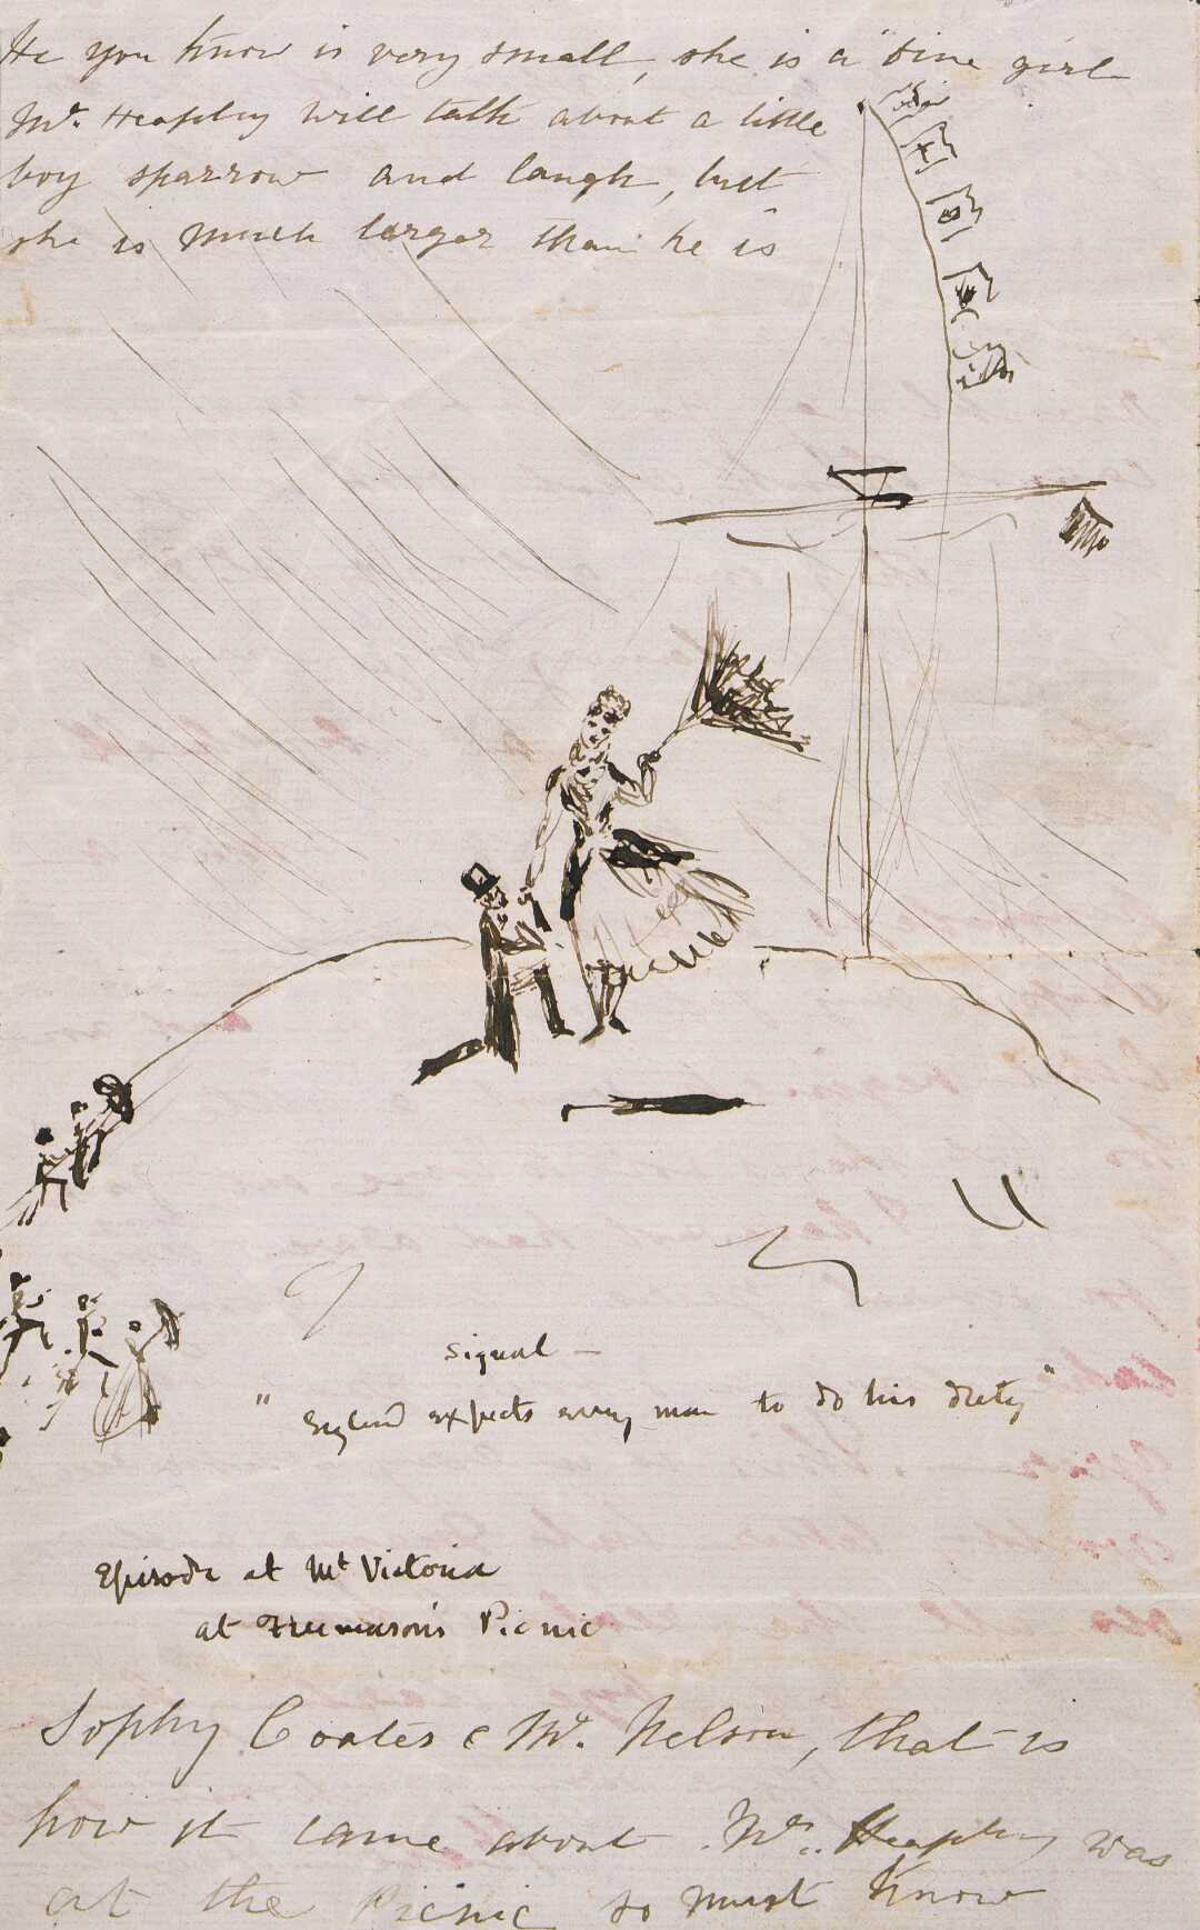 He you know is very small, she is a "fine girl
Mr. Heaphy will talk about a little
boy sparrow and laugh, but
she is much larger than he is"
Signal —
"England expects every man to do his duty"
Episode at Mt Victoria
at Freemason's Picnic
Sophy Coates & Mr. Nelson, that is
how it came about. Heaphy was
at the Picnic so must know